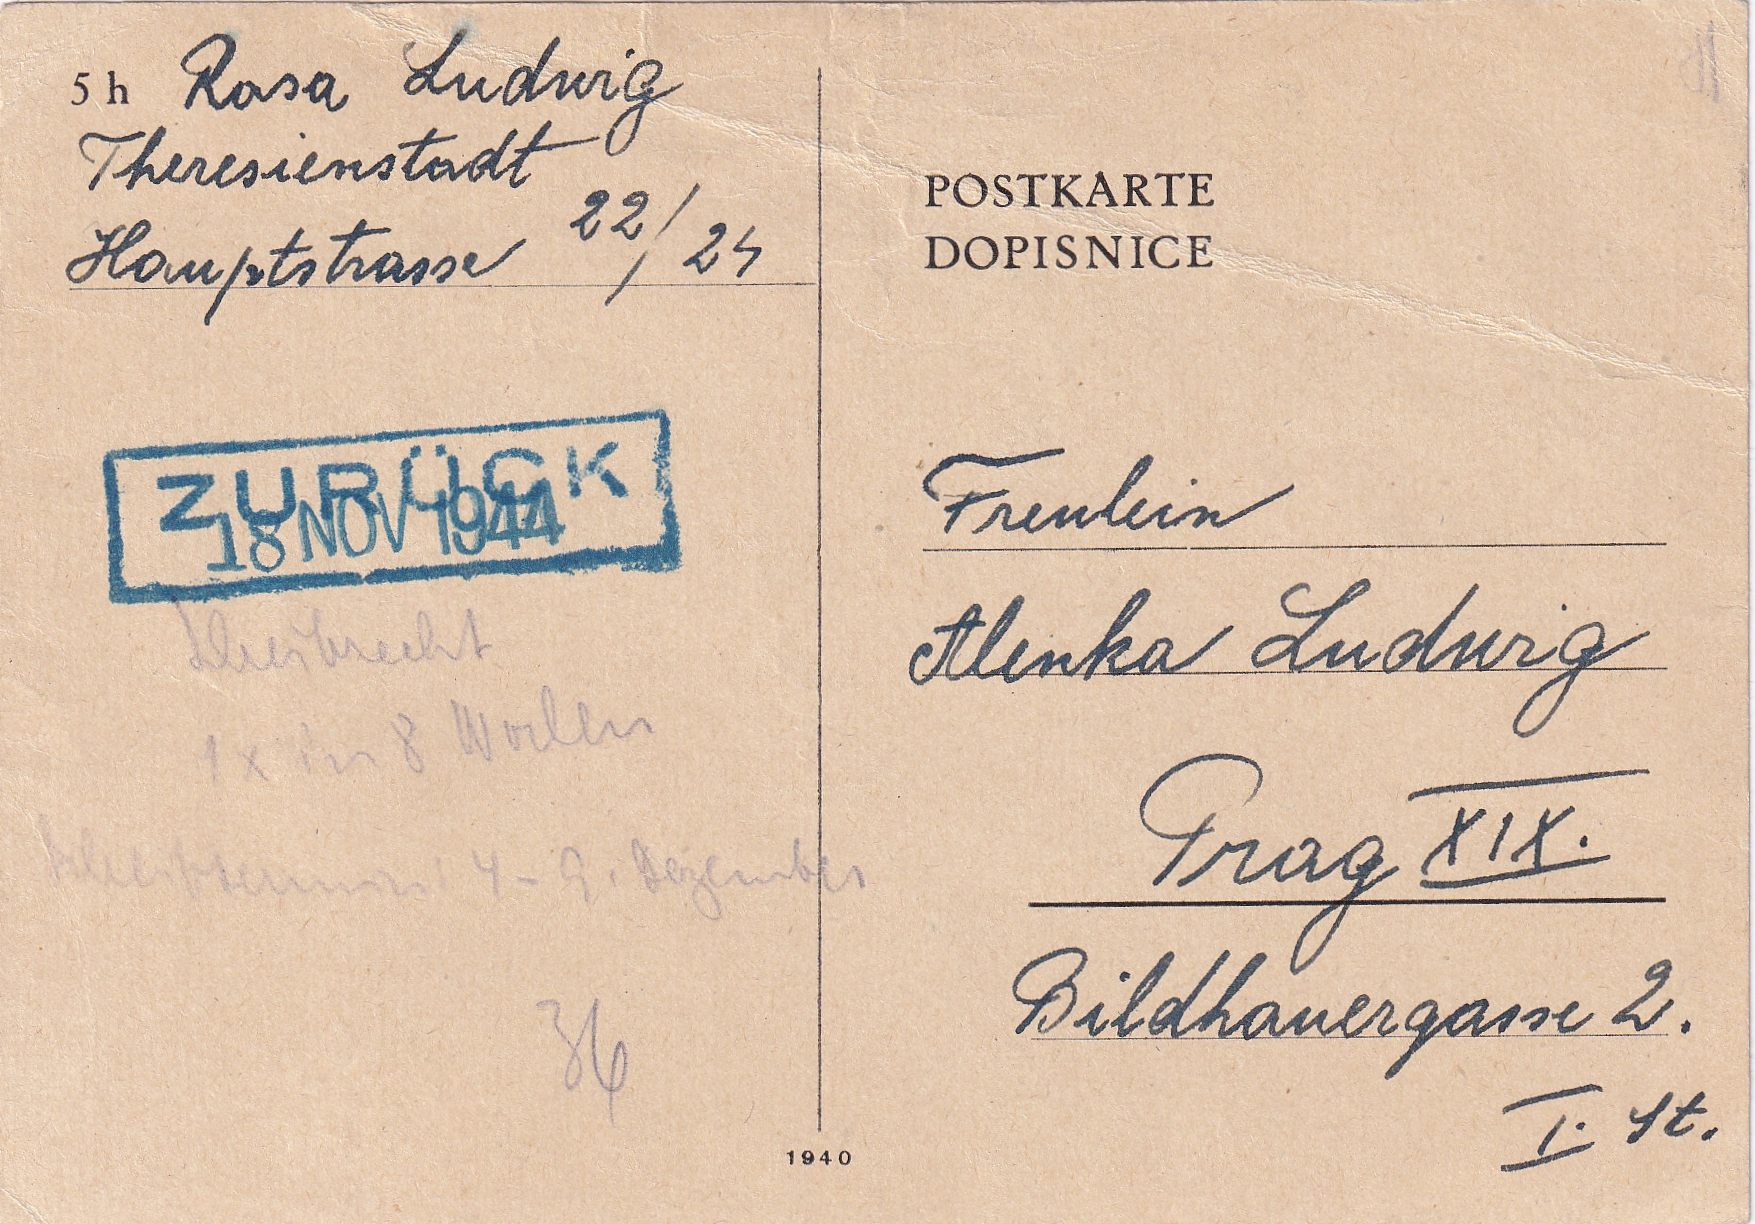 5 h Rosa Ludwig
Theresienstadt
Hauptstrasse 22/24
ZURÜCK
18 NOV 1944
1 x in 8 Wochen
4 - 9. Dezember
36
POSTKARTE
DOPISNICE
Freulein
Alenka Ludwig
Prag XIX.
Bildhauergasse 2.
I. St.
1940